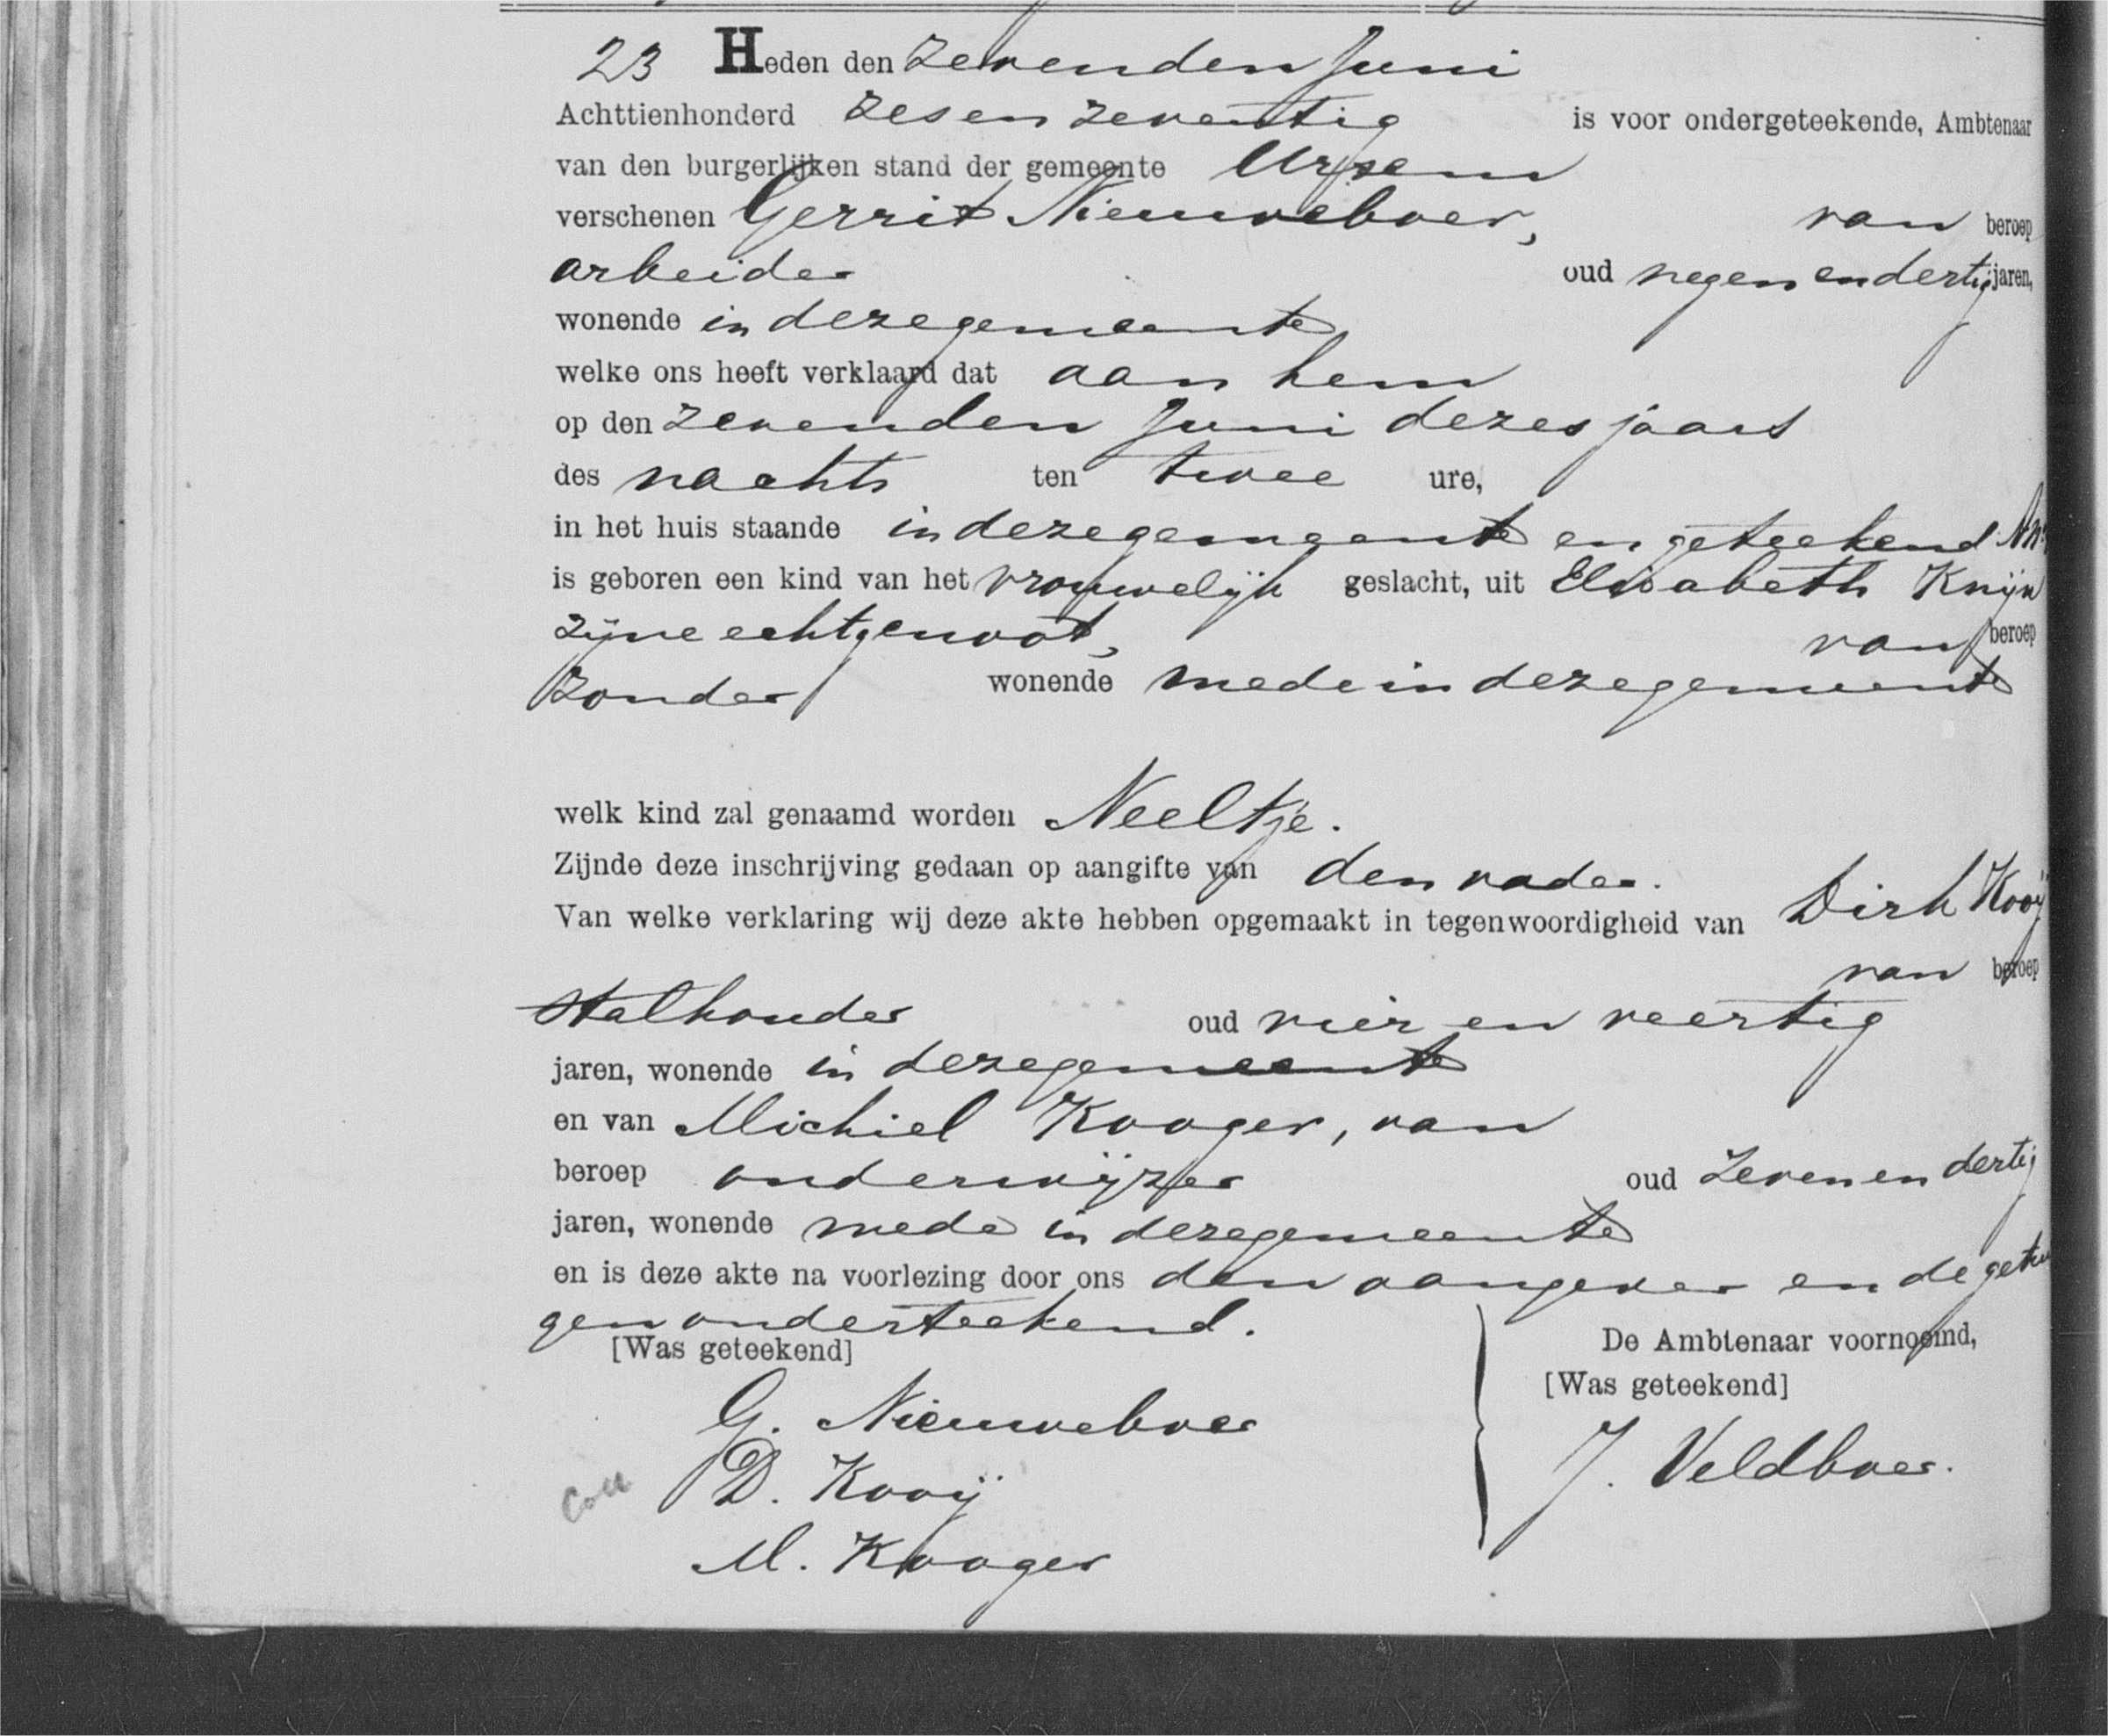 23 Heden den zevenden Juni
Achttienhonderd zes en zeventig is voor ondergeteekende, Ambtenaar
van den burgerlijken stand der gemeente Ursem
verschenen Gerrit Nieuweboer, van beroep
arbeider oud negen en dertig jaren,
wonende in deze gemeente
welke ons heeft verklaard dat aan hem
op den zevenden Juni dezes jaars
des nachts ten twee ure,
in het huis staande in deze gemeente en geteekend
is geboren een kind van het vrouwelijk geslacht, uit Elisabeth Knijn
zijne echtgenoot, van beroep
zonder wonende mede in deze gemeente
welk kind zal genaamd worden Neeltje.
Zijnde deze inschrijving gedaan op aangifte van den vader.
Van welke verklaring wij deze akte hebben opgemaakt in tegenwoordigheid van Dirk Kooij
van beroep
stalhouder oud vier en veertig
jaren, wonende in deze gemeente
en van Michiel Kooger, van
beroep onderwijzer oud zeven en dertig
jaren, wonende mede in deze gemeente
en is deze akte na voorlezing door ons den aangever en de getui
gen onderteekend.
[Was geteekend] De Ambtenaar voornoemd,
[Was geteekend]
G. Nieuweboer
D. Kooij J. Veldboer.
M. Kooger